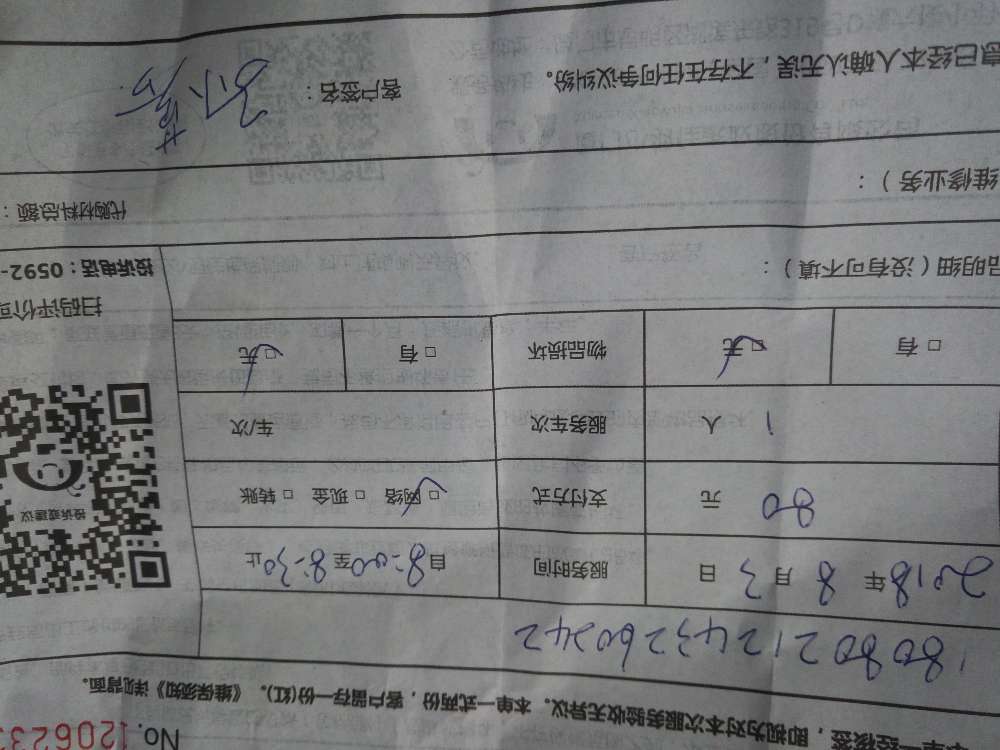 No.120623
经核签，即视为对本次服务验收无异议。本单一式两份，客户留存一份(红)。《维保须知》详观背面。
1808021243260242
2018年8月3日 服务时间 自8:00至8:30止
80元 支付方式 □网络 □现金 □转账
1人 服务车次 车/次
投诉或建议
□有 □无 物品损坏 □有 □无
扫码评价可
品明细（没有可不填）：
投诉电话：0592-
维修业务）：
代购材料总额：
息已经本人确认无误，不存在任何争议纠纷。 客户签名：